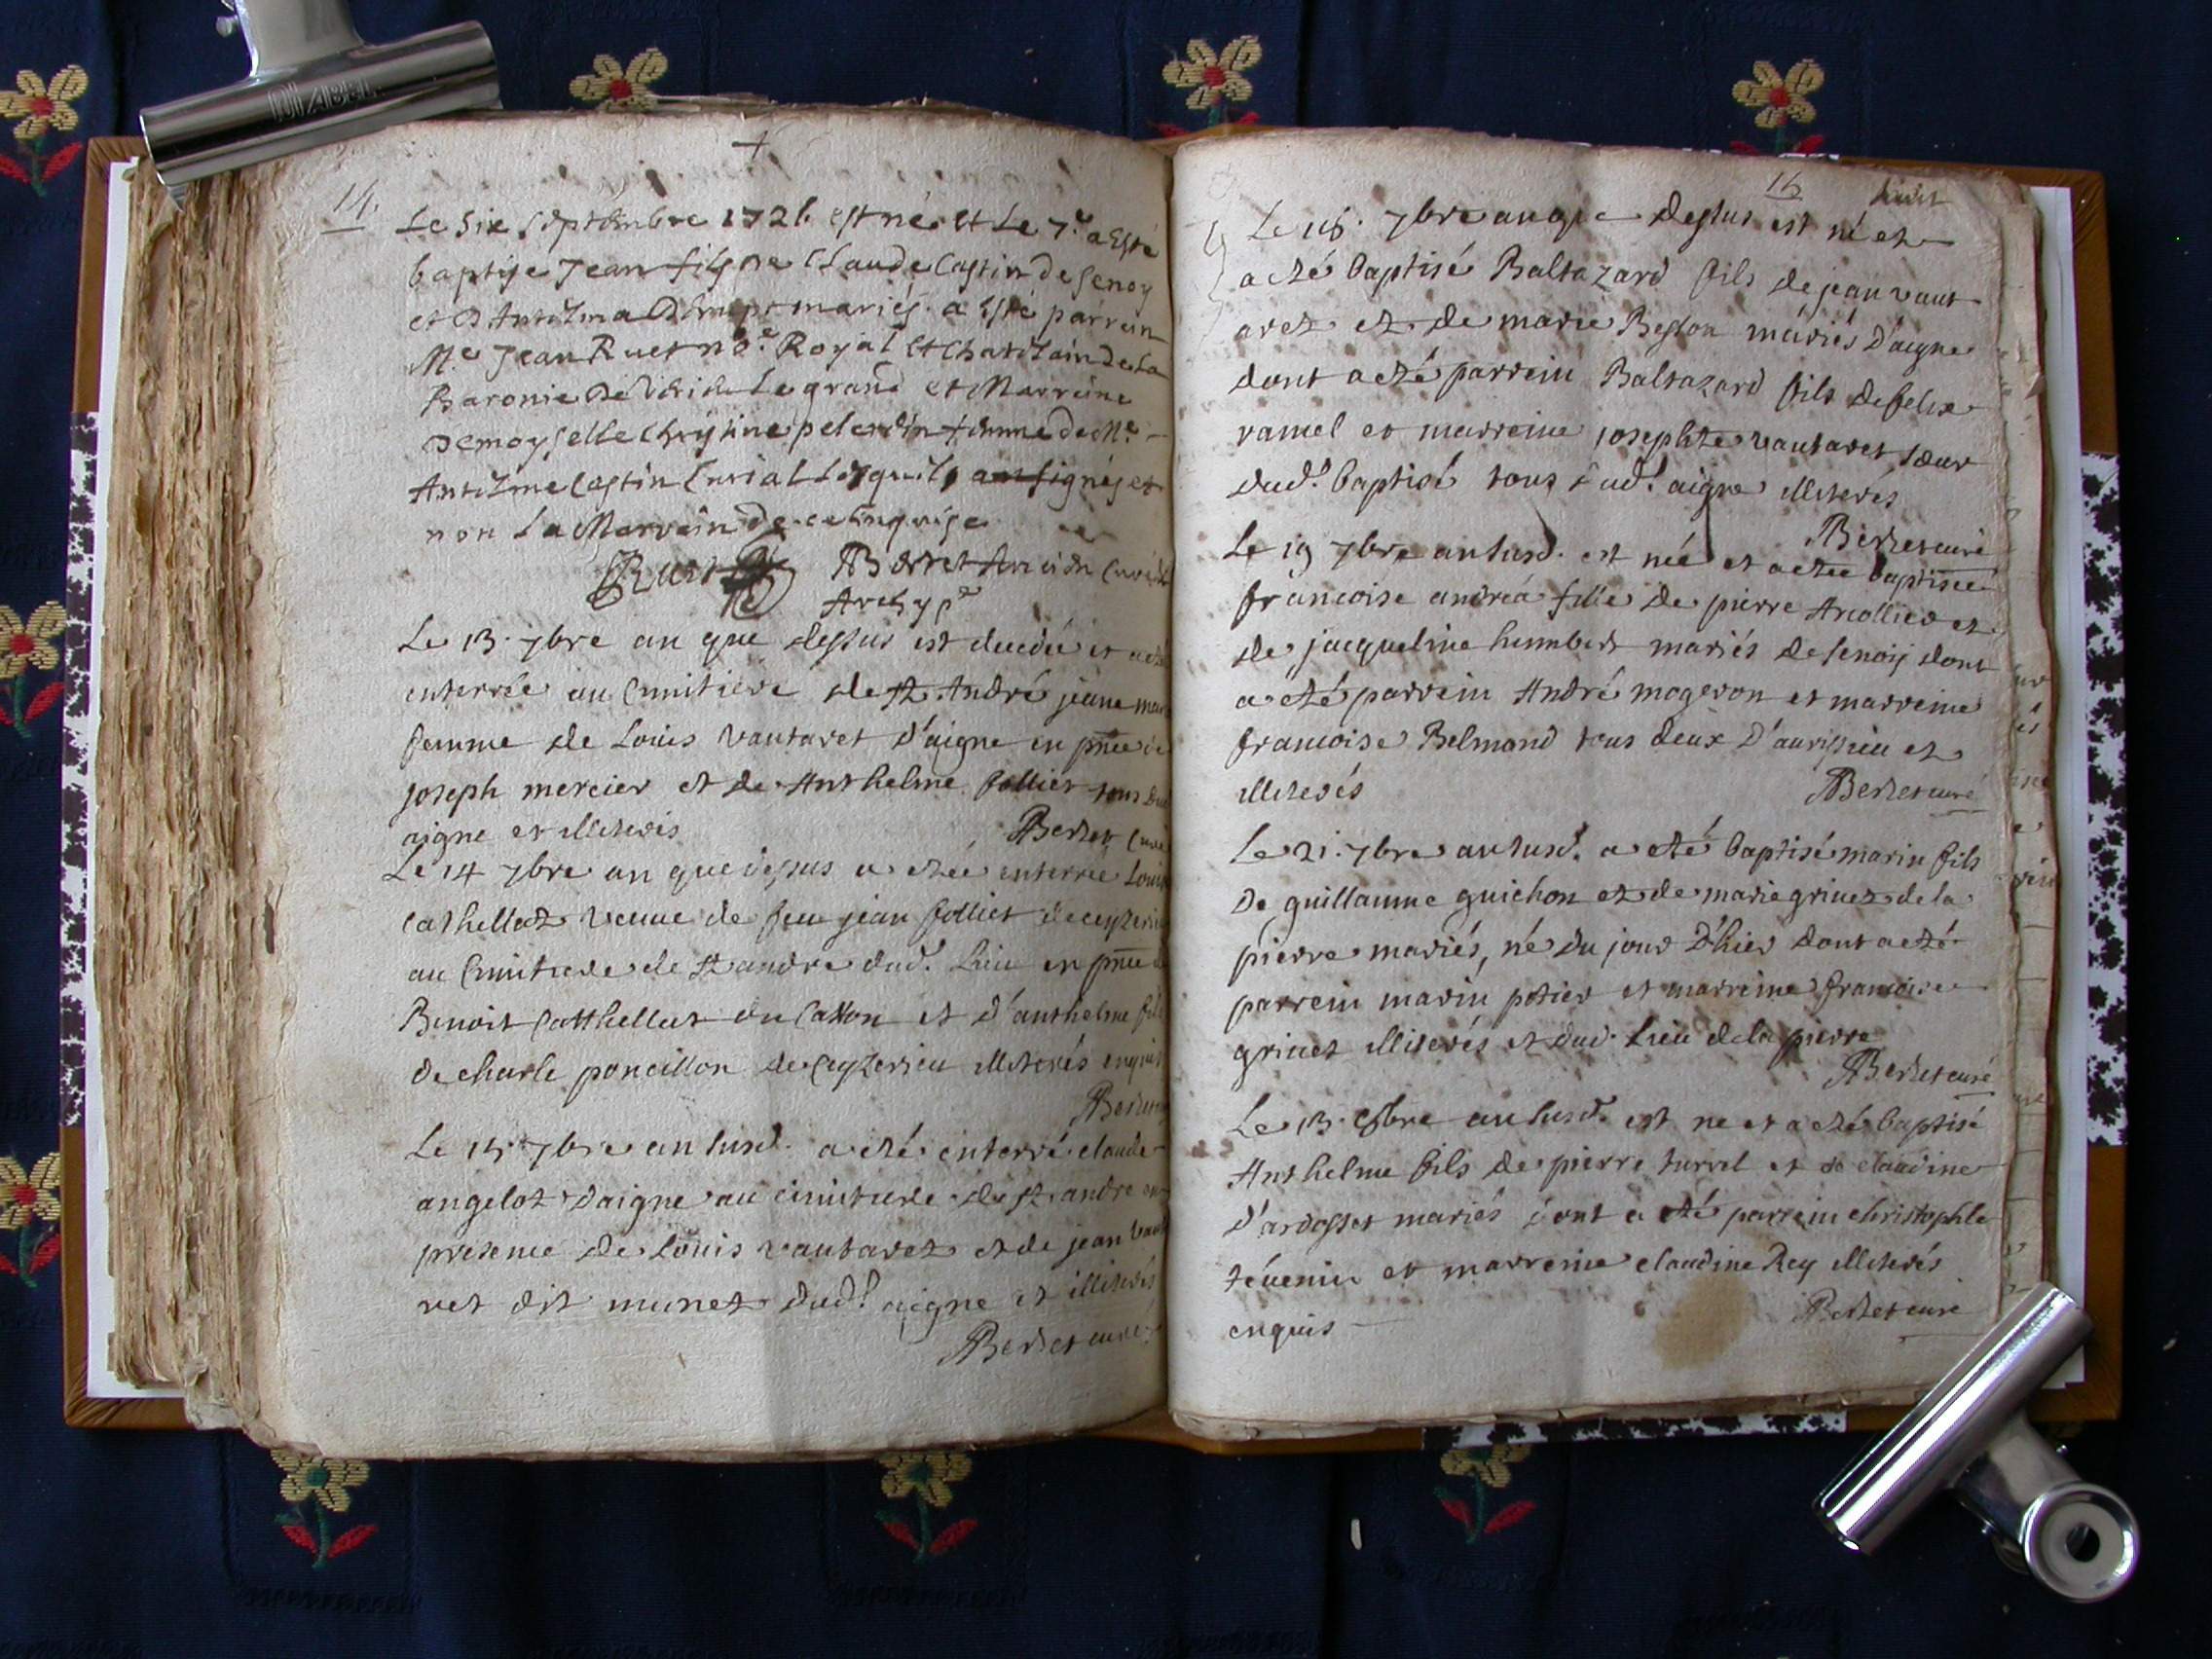 14.
Le Six Septembre 1726 est né et Le 7.e a Esté
baptise Jean fils de Claude Castin de Senoy
et D mariés. a Esté parrin
M.e Jean Ruet no.e Royal et Chatelain de La
Baronie de Le grand et Marreine
Demoyselle Chrystine femme de M.e
Antelme Castin Curial Lesquils ont signés et
non La Marrein de ce Enquise
Ruet Berret Ancien Curé
Le 13. 7bre an que dessus est et a
enterrée au Cimitiere de St. André jeane
femme de Louis Vautaret d'aigne en pnce de
joseph mercier et de Anthelme follier tous
aigne et illiterés
Berret Curé
Le 14 7bre an que dessus a etée enterrée Louise
Cathellaz veuve de feu jean follier de
au Cimitiere de St andre dud.t Lieu en pnce de
Benoit Catthellat du et d'anthelme fils
de charle poncillon de Ceyzerieu illiterés enquis
Berret
Le 15 7bre an susd. a eté enterré claude
angelot d'aigne au cimitiere de St. andre en
presence de Louis vautaret et de jean Vauta
ret dit munet dud.t aigne et illiterés
Berret curé
15 huit
Le 16. 7bre an que dessus est né et
a eté baptisé Baltazard fils de jean vaut
aret et de marie Beston mariés D'aigne
dont a eté parrein Baltazard fils de felix
ramel et marreine josephte vautaret soeur
dud.t baptisé tous dud.t aigne illiterés
Berret curé
Le 19 7bre an susd. est née et a etée baptiseé
francoise andréa fille de pierre et
de jacqueline humbert mariés de senoij dont
a eté parrein André mogeron et marreine
francoise Belmond tous deux D'aurissieu et
illiterés Berret curé
Le 21. 7bre an susd. a eté baptisé marin fils
De guillaume guichon et de marie grinet de la
pierre mariés, né du jour D'hier dont a eté
parrein marin potier et marreine francoise
grinet illiterés et dud. Lieu de la pierre
Berret curé
Le 13. 8bre an susd. est ne et a eté baptisé
Anthelme fils de pierre turrel et de claudine
d'ardosset mariés dont a eté parrein christophle
tévenin et marreine claudine Rey illiterés
enquis Berret curé